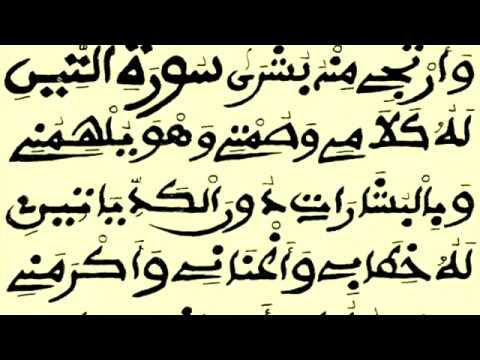 وَأَرْتَجِي مِنْهُ بُشْرَى سُورَةِ التِّينِ
لَهُ كَلَامِي وَصَمْتِي وَهْوَ يُلْهِمُنِي
وَبِالْبَشَارَاتِ دُونَ الْكَدِّ يَاتِينِي
لَهُ خِطَابِي وَأَغْنَانِي وَأَكْرَمَنِي